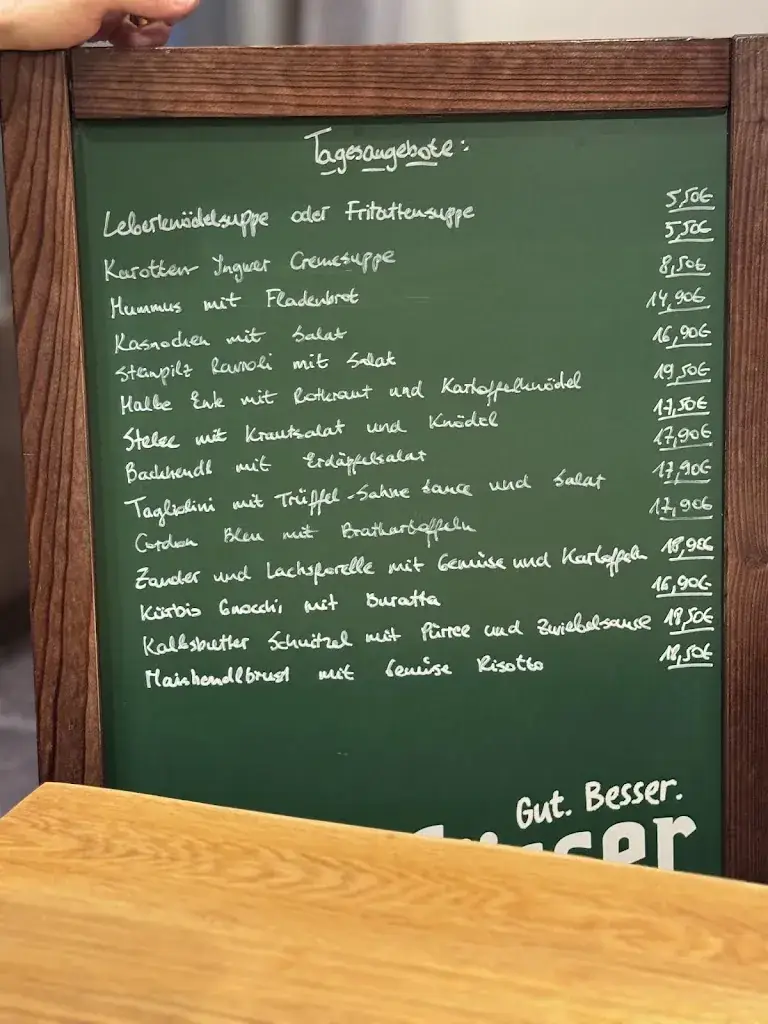 Tagesangebote:
Leberknödelsuppe oder Fritattensuppe 5,50€
Karotten Ingwer Cremesuppe 5,50€
Hummus mit Fladenbrot 8,50€
Kasnocken mit Salat 14,90€
Steinpilz Ravioli mit Salat 16,90€
Halbe Ente mit Rotkraut und Kartoffelknödel 19,50€
Stelze mit Krautsalat und Knödel 17,50€
Backhendl mit Erdäpfelsalat 17,90€
Tagliolini mit Trüffel-Sahne Sauce und Salat 17,90€
Cordon Bleu mit Bratkartoffeln 17,90€
Zander und Lachsforelle mit Gemüse und Kartoffeln 18,90€
Kürbis Gnocchi mit Buratta 16,90€
Kalbsbutter Schnitzel mit Pürree und Zwiebelsauce 18,50€
Maishendlbrust mit Gemüse Risotto 18,50€
Gut. Besser.